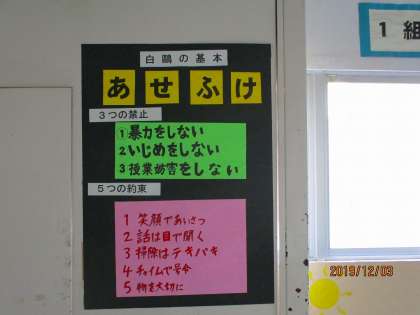 白鷗の基本
あせふけ
3つの禁止
1暴力をしない
2いじめをしない
3授業妨害をしない
5つの約束
1 笑顔であいさつ
2 話は目で聞く
3 掃除はテキパキ
4 チャイムで号令
5 物を大切に
1組
2019/12/03